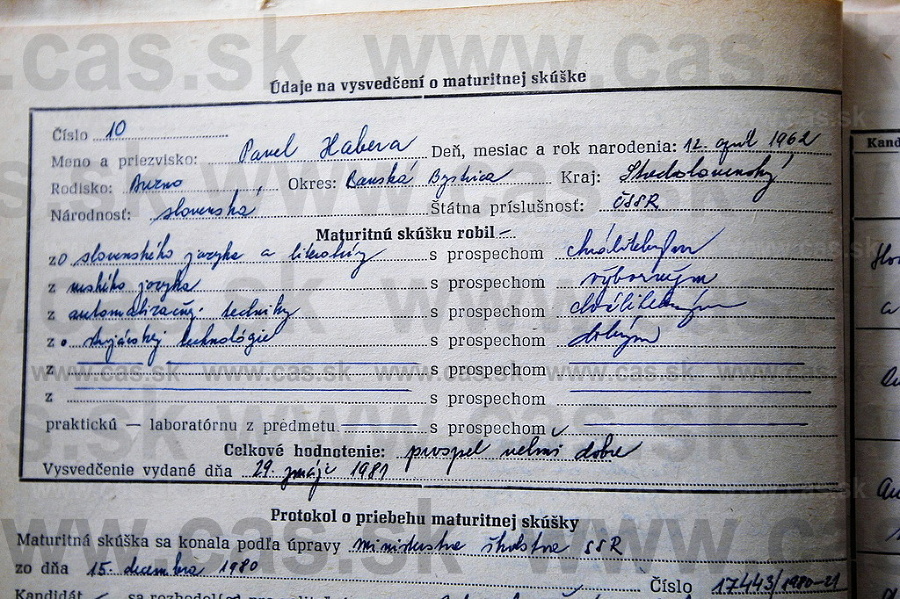 Údaje na vysvedčení o maturitnej skúške
Číslo 10
Meno a priezvisko: Pavel Habera Deň, mesiac a rok narodenia: 12. apríl 1962
Rodisko: Brezno Okres: Banská Bystrica Kraj: Stredoslovenský
Národnosť: slovenská Štátna príslušnosť: ČSSR
Maturitnú skúšku robil
zo slovenského jazyka a literatúry s prospechom chválitebným
z ruského jazyka s prospechom výborným
z automatizačnej techniky s prospechom chválitebným
zo strojárskej technológie s prospechom dobrým
z s prospechom
z s prospechom
praktickú — laboratórnu z predmetu s prospechom
Celkové hodnotenie: prospel veľmi dobre
Vysvedčenie vydané dňa 29. mája 1981
Protokol o priebehu maturitnej skúšky
Maturitná skúška sa konala podľa úpravy ministerstva školstva SSR
zo dňa 15. decembra 1980 Číslo 17443/1980-21
Kandidát sa
Kand
www.cas.sk